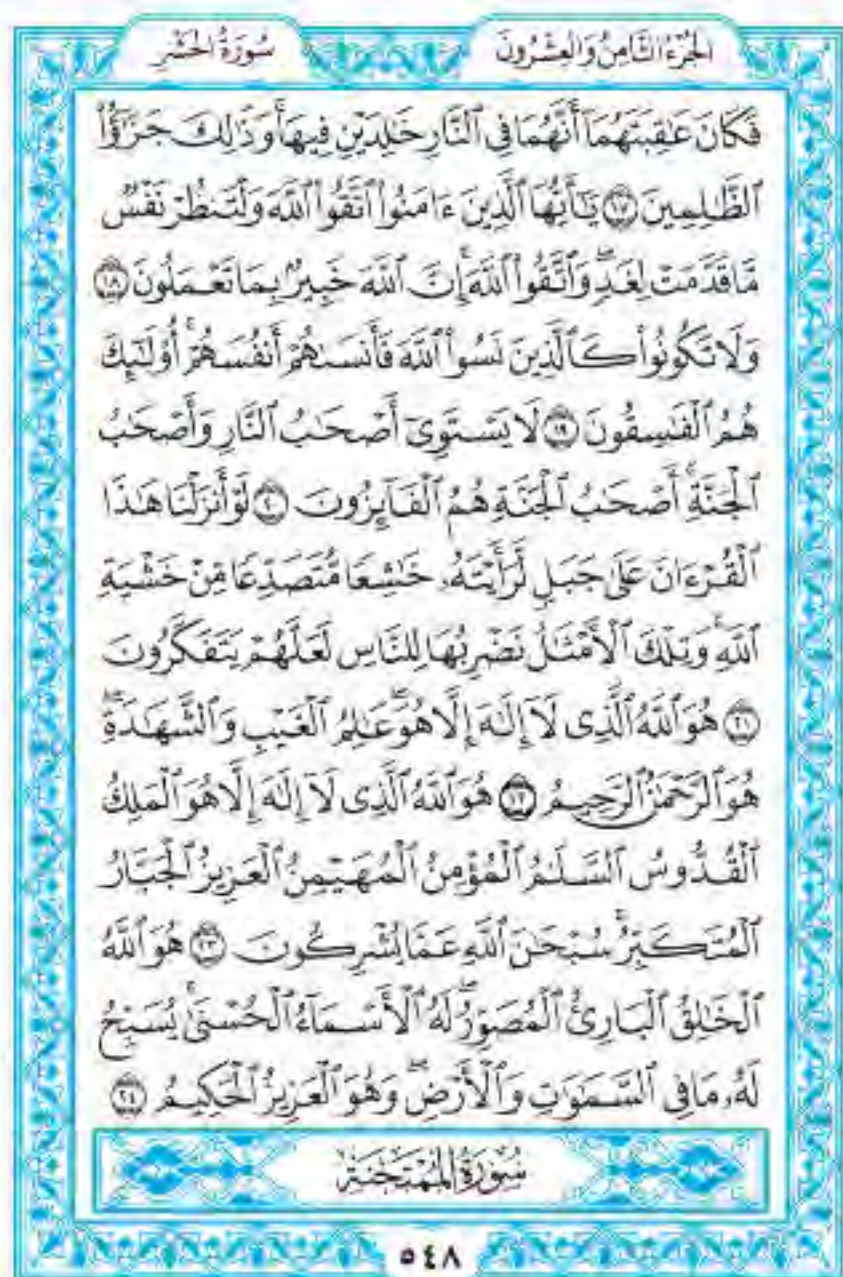 الجزء الثامن والعشرون
سورة الحشر
فَكَانَ عَٰقِبَتَهُمَآ أَنَّهُمَا فِى ٱلنَّارِ خَٰلِدَيْنِ فِيهَا ۚ وَذَٰلِكَ جَزَٰٓؤُا۟
ٱلظَّٰلِمِينَ ١٧ يَٰٓأَيُّهَا ٱلَّذِينَ ءَامَنُوا۟ ٱتَّقُوا۟ ٱللَّهَ وَلْتَنظُرْ نَفْسٌ
مَّا قَدَّمَتْ لِغَدٍ ۖ وَٱتَّقُوا۟ ٱللَّهَ ۚ إِنَّ ٱللَّهَ خَبِيرٌۢ بِمَا تَعْمَلُونَ ١٨
وَلَا تَكُونُوا۟ كَٱلَّذِينَ نَسُوا۟ ٱللَّهَ فَأَنسَىٰهُمْ أَنفُسَهُمْ ۚ أُو۟لَٰٓئِكَ
هُمُ ٱلْفَٰسِقُونَ ١٩ لَا يَسْتَوِىٓ أَصْحَٰبُ ٱلنَّارِ وَأَصْحَٰبُ
ٱلْجَنَّةِ ۚ أَصْحَٰبُ ٱلْجَنَّةِ هُمُ ٱلْفَآئِزُونَ ٢٠ لَوْ أَنزَلْنَا هَٰذَا
ٱلْقُرْءَانَ عَلَىٰ جَبَلٍ لَّرَأَيْتَهُۥ خَٰشِعًا مُّتَصَدِّعًا مِّنْ خَشْيَةِ
ٱللَّهِ ۚ وَتِلْكَ ٱلْأَمْثَٰلُ نَضْرِبُهَا لِلنَّاسِ لَعَلَّهُمْ يَتَفَكَّرُونَ
٢١ هُوَ ٱللَّهُ ٱلَّذِى لَآ إِلَٰهَ إِلَّا هُوَ ۖ عَٰلِمُ ٱلْغَيْبِ وَٱلشَّهَٰدَةِ ۖ
هُوَ ٱلرَّحْمَٰنُ ٱلرَّحِيمُ ٢٢ هُوَ ٱللَّهُ ٱلَّذِى لَآ إِلَٰهَ إِلَّا هُوَ ٱلْمَلِكُ
ٱلْقُدُّوسُ ٱلسَّلَٰمُ ٱلْمُؤْمِنُ ٱلْمُهَيْمِنُ ٱلْعَزِيزُ ٱلْجَبَّارُ
ٱلْمُتَكَبِّرُ ۚ سُبْحَٰنَ ٱللَّهِ عَمَّا يُشْرِكُونَ ٢٣ هُوَ ٱللَّهُ
ٱلْخَٰلِقُ ٱلْبَارِئُ ٱلْمُصَوِّرُ ۖ لَهُ ٱلْأَسْمَآءُ ٱلْحُسْنَىٰ ۚ يُسَبِّحُ
لَهُۥ مَا فِى ٱلسَّمَٰوَٰتِ وَٱلْأَرْضِ ۖ وَهُوَ ٱلْعَزِيزُ ٱلْحَكِيمُ ٢٤
سُورَةُ الْمُمْتَحَنَةِ
٥٤٨